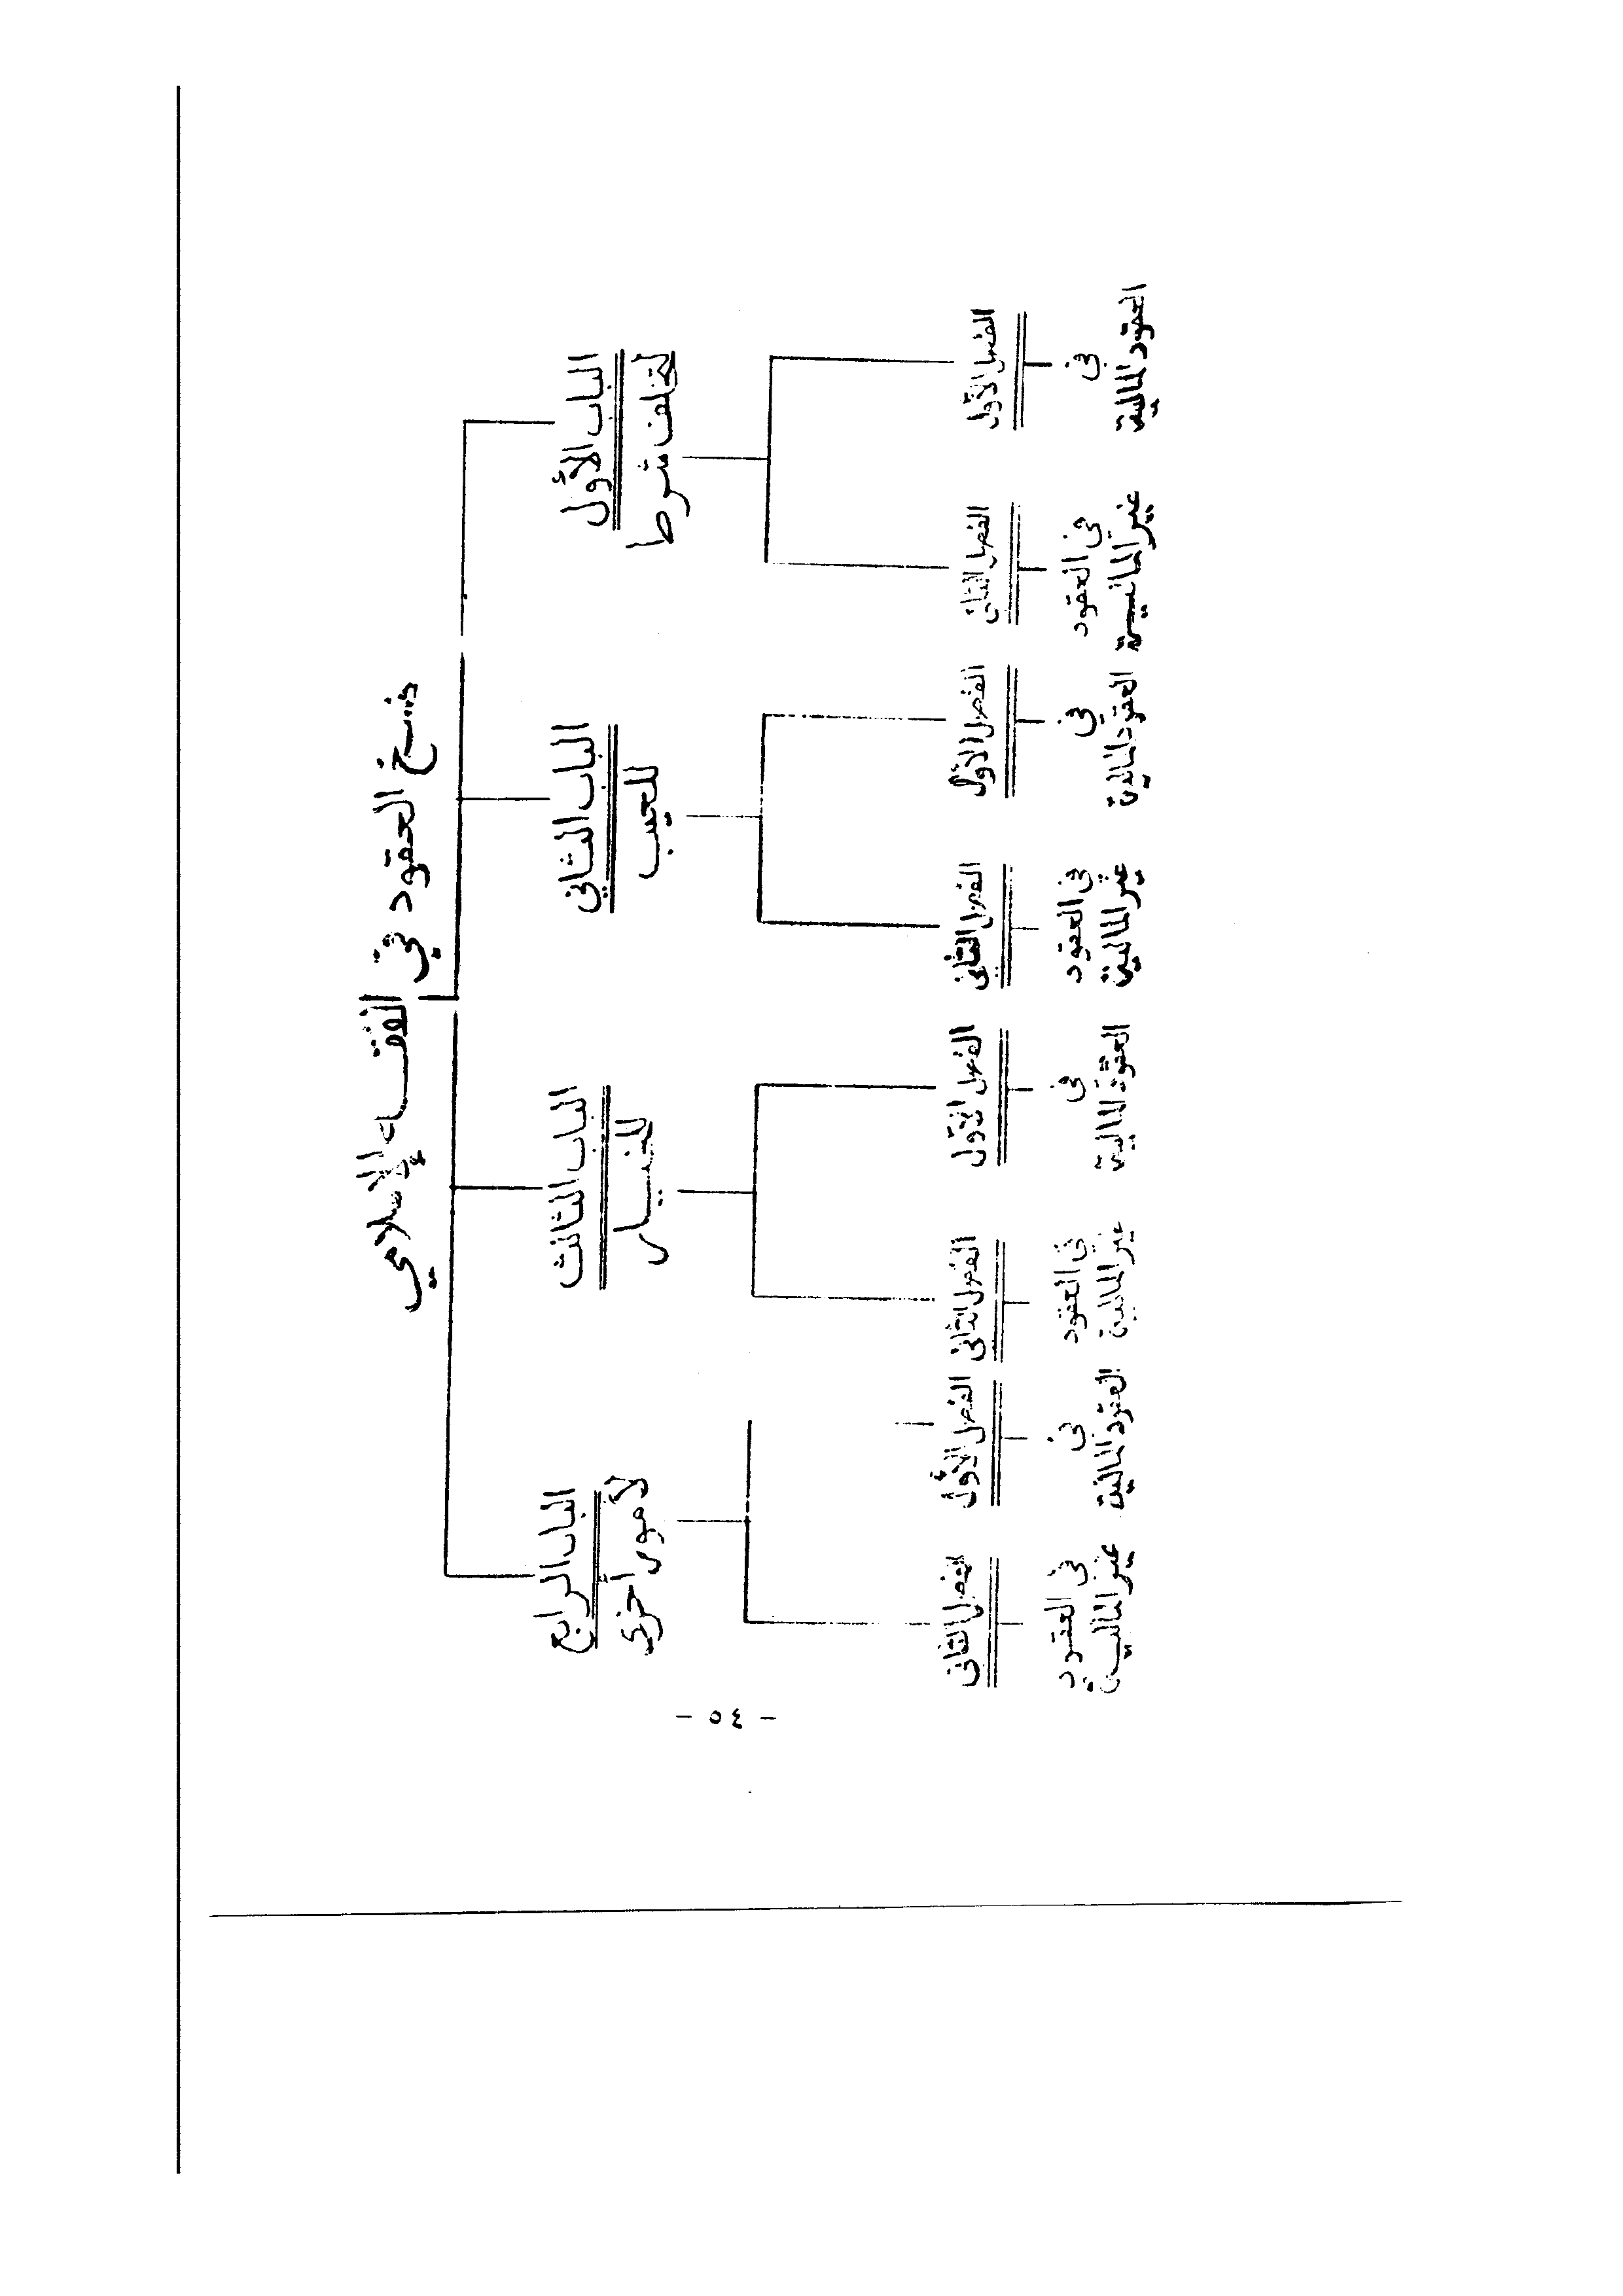 فسخ العقود في الفقه الإسلامي
الباب الأول
لتخلف شرط
الفصل الأول
في
العقود المالية
الفصل الثاني
في العقود
غير المالية
الباب الثاني
للعيب
الفصل الأول
في
العقود المالية
الفصل الثاني
في العقود
غير المالية
الباب الثالث
للخيار
الفصل الأول
في
العقود المالية
الفصل الثاني
في العقود
غير المالية
الباب الرابع
لأمور أخرى
الفصل الأول
في
العقود المالية
الفصل الثاني
في العقود
غير المالية
- ٤٥ -